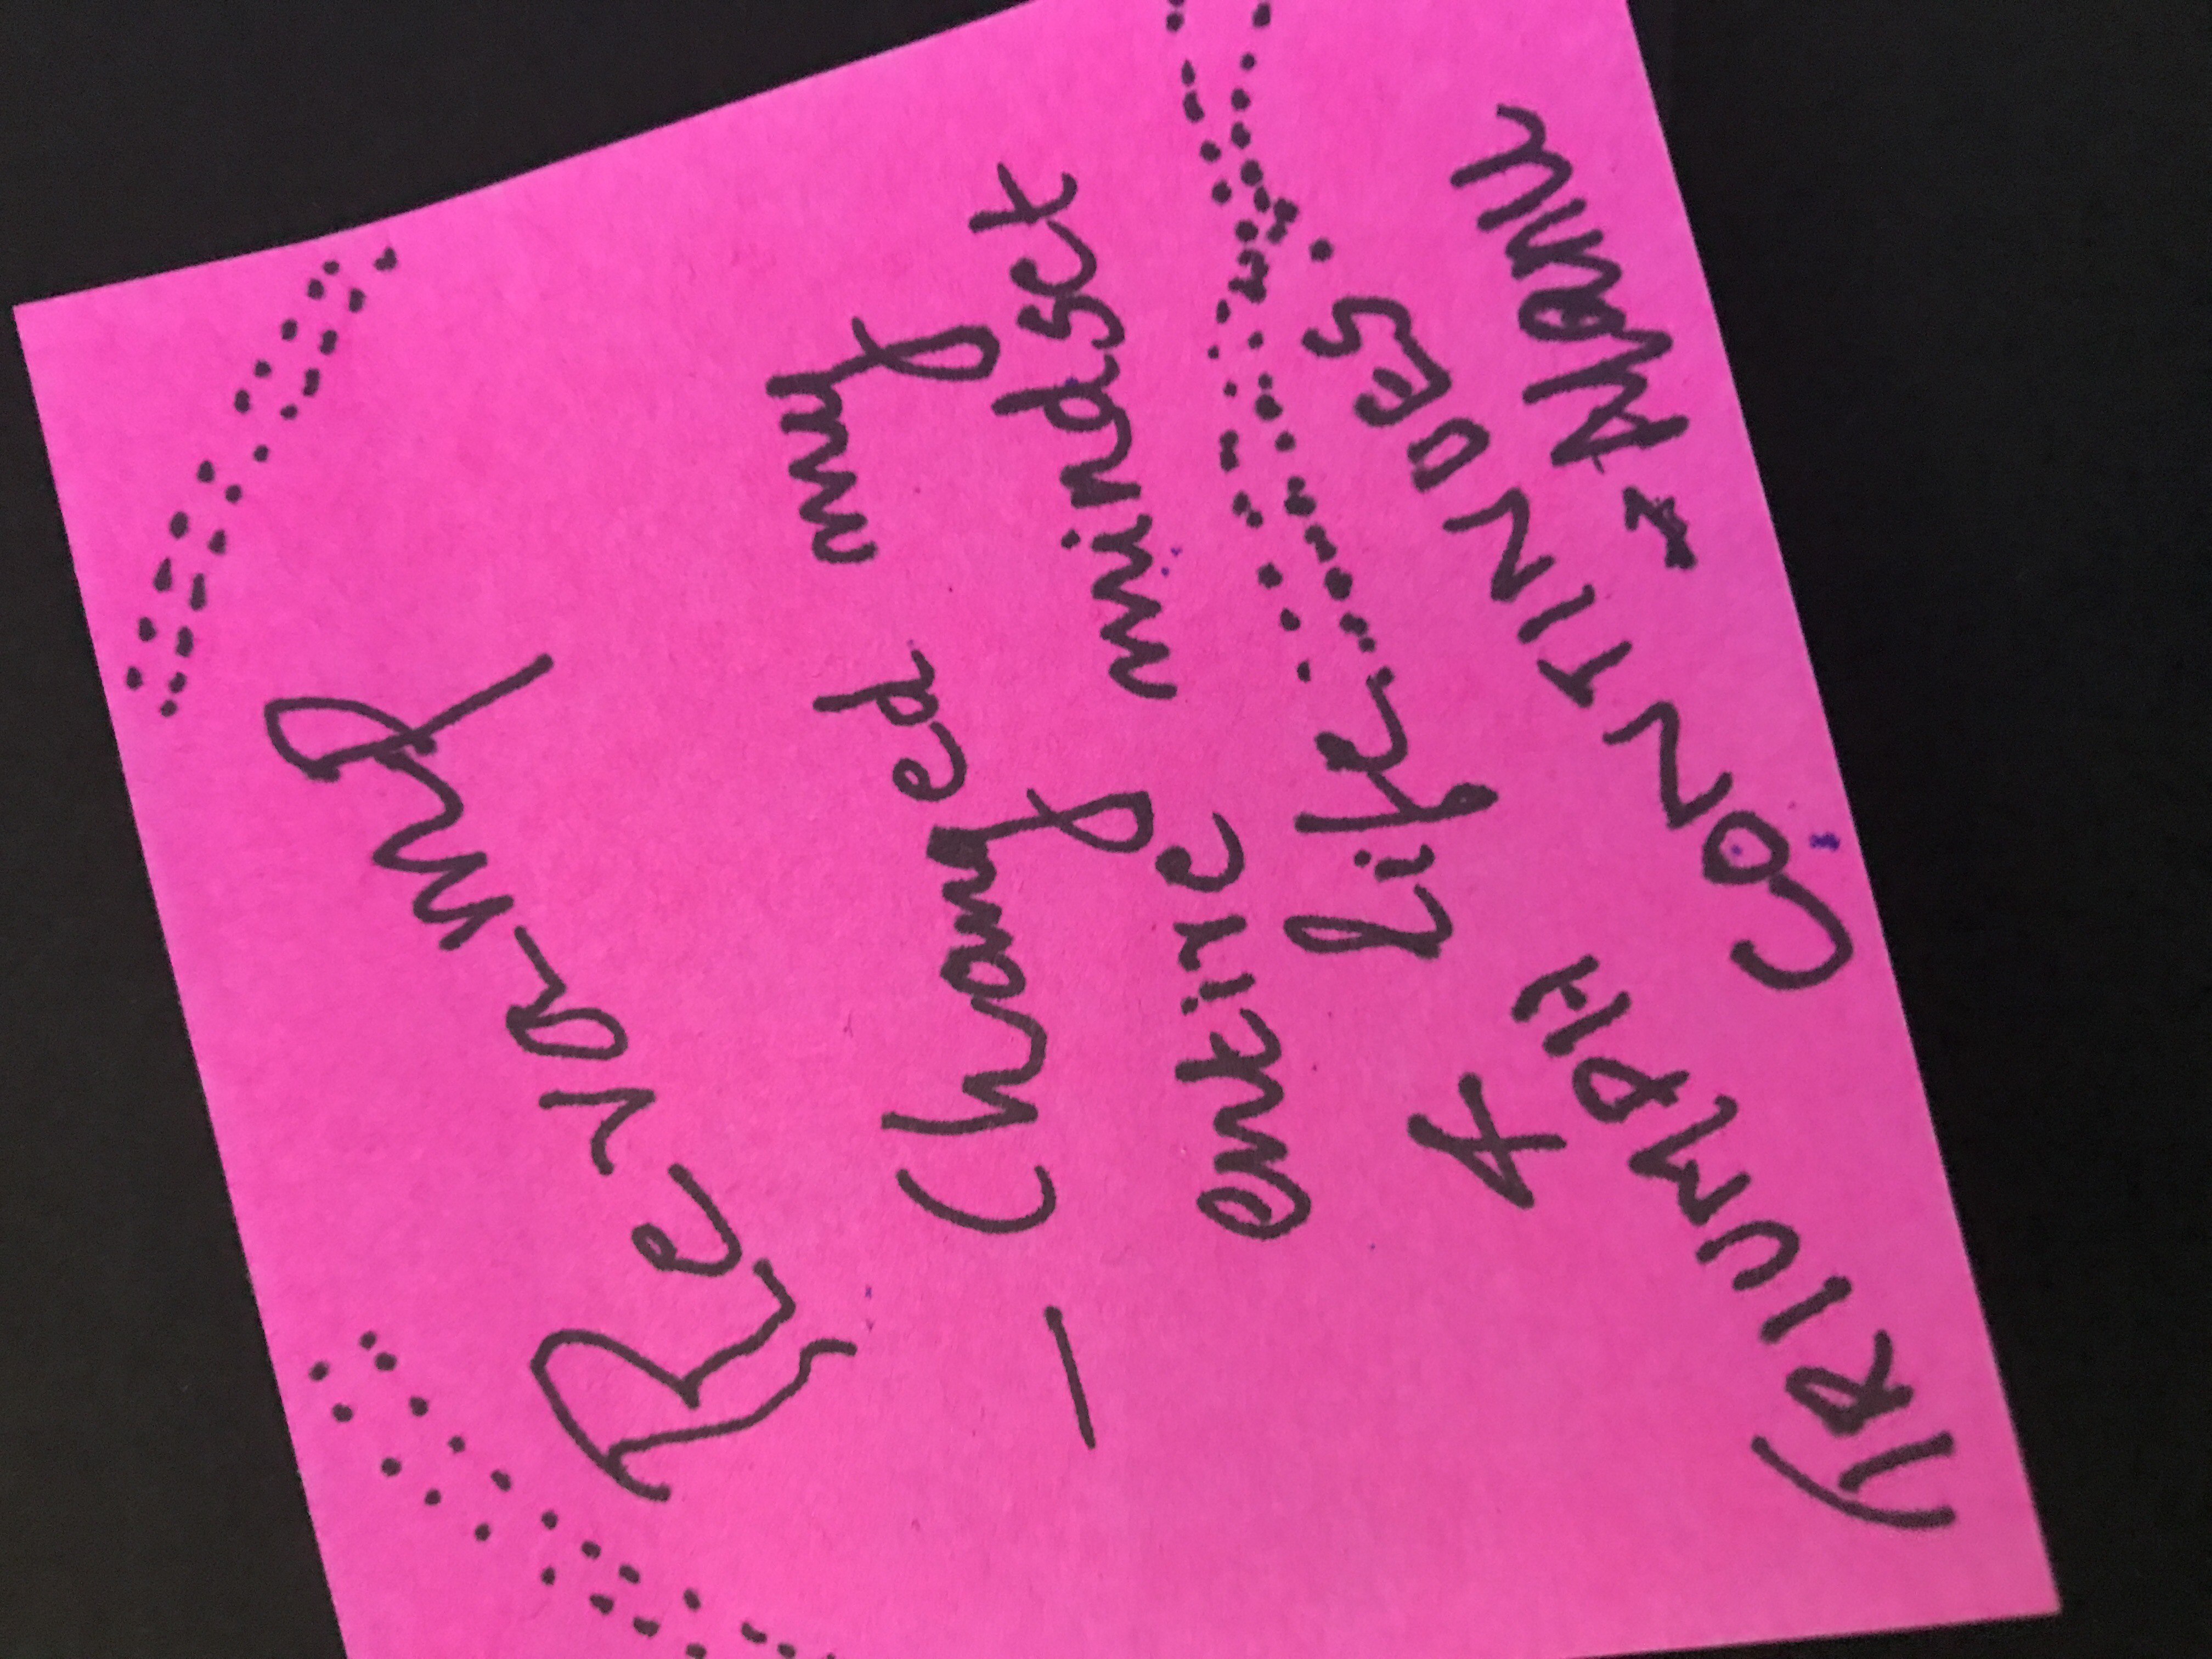 Revamp
- Changed my
entire mindset
& life
TRIUMPH
CONTINUES.
- Manu